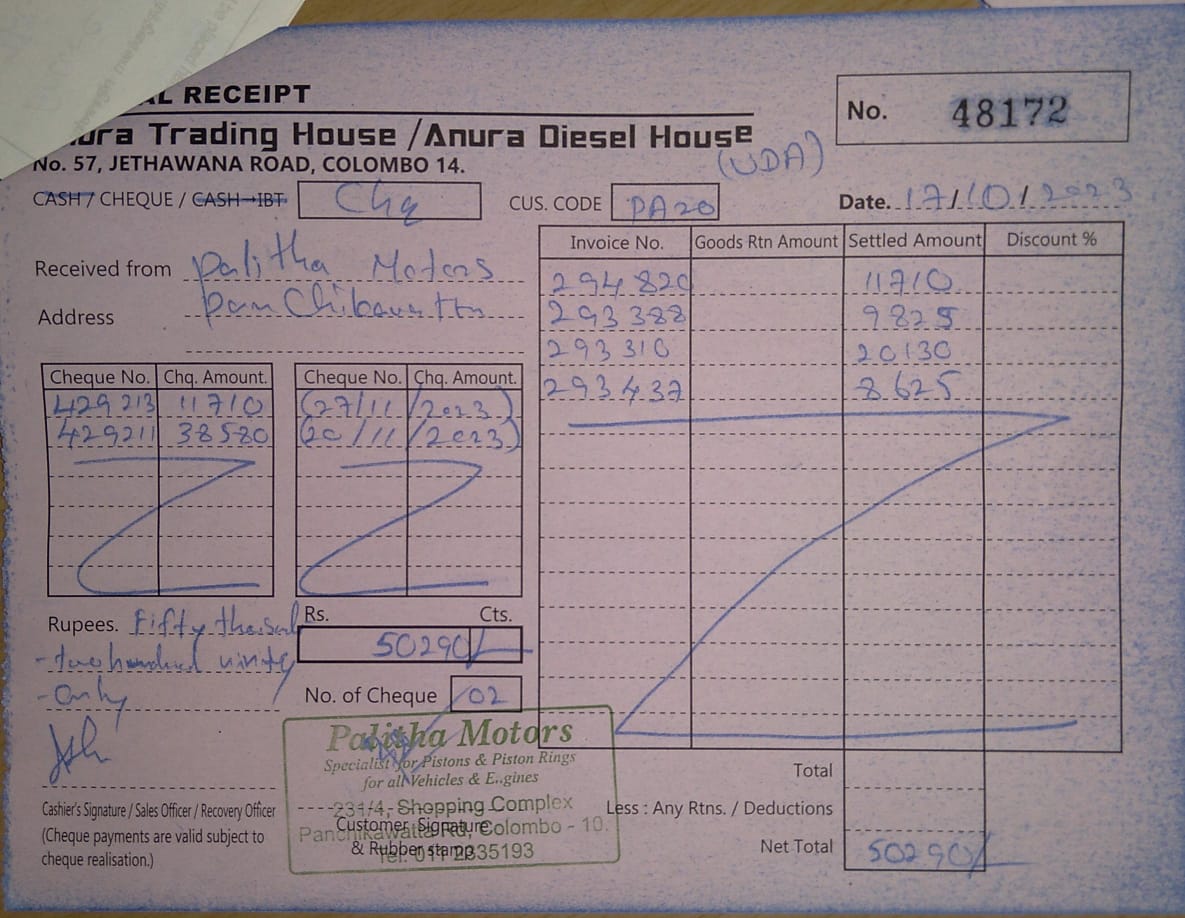 AL RECEIPT
No. 48172
ura Trading House / Anura Diesel House
(UDA)
No. 57, JETHAWANA ROAD, COLOMBO 14.
CASH / CHEQUE / CASH→IBT Chq CUS. CODE PA20 Date. 17/10/2023
Received from Palitha Motors
Address
Invoice No. Goods Rtn Amount Settled Amount Discount %
294820 11710
293388 9825
293310 20130
293437 8625
Cheque No. Chq. Amount. Cheque No. Chq. Amount.
429213 11710 (27/11/2023)
429211 38580 (20/11/2023)
Rupees. Fifty thousand
- two hundred ninty
- only
Rs. Cts.
50290/-
No. of Cheque 02
Palitha Motors
Specialist for Pistons & Piston Rings
for all Vehicles & Engines
231/4, Shopping Complex
Panchikawatta Rd, Colombo - 10.
Tel: 011 2335193
Cashier's Signature / Sales Officer / Recovery Officer
(Cheque payments are valid subject to
cheque realisation.)
Customer Signature
& Rubber stamp
Total
Less : Any Rtns. / Deductions
Net Total 50290/-